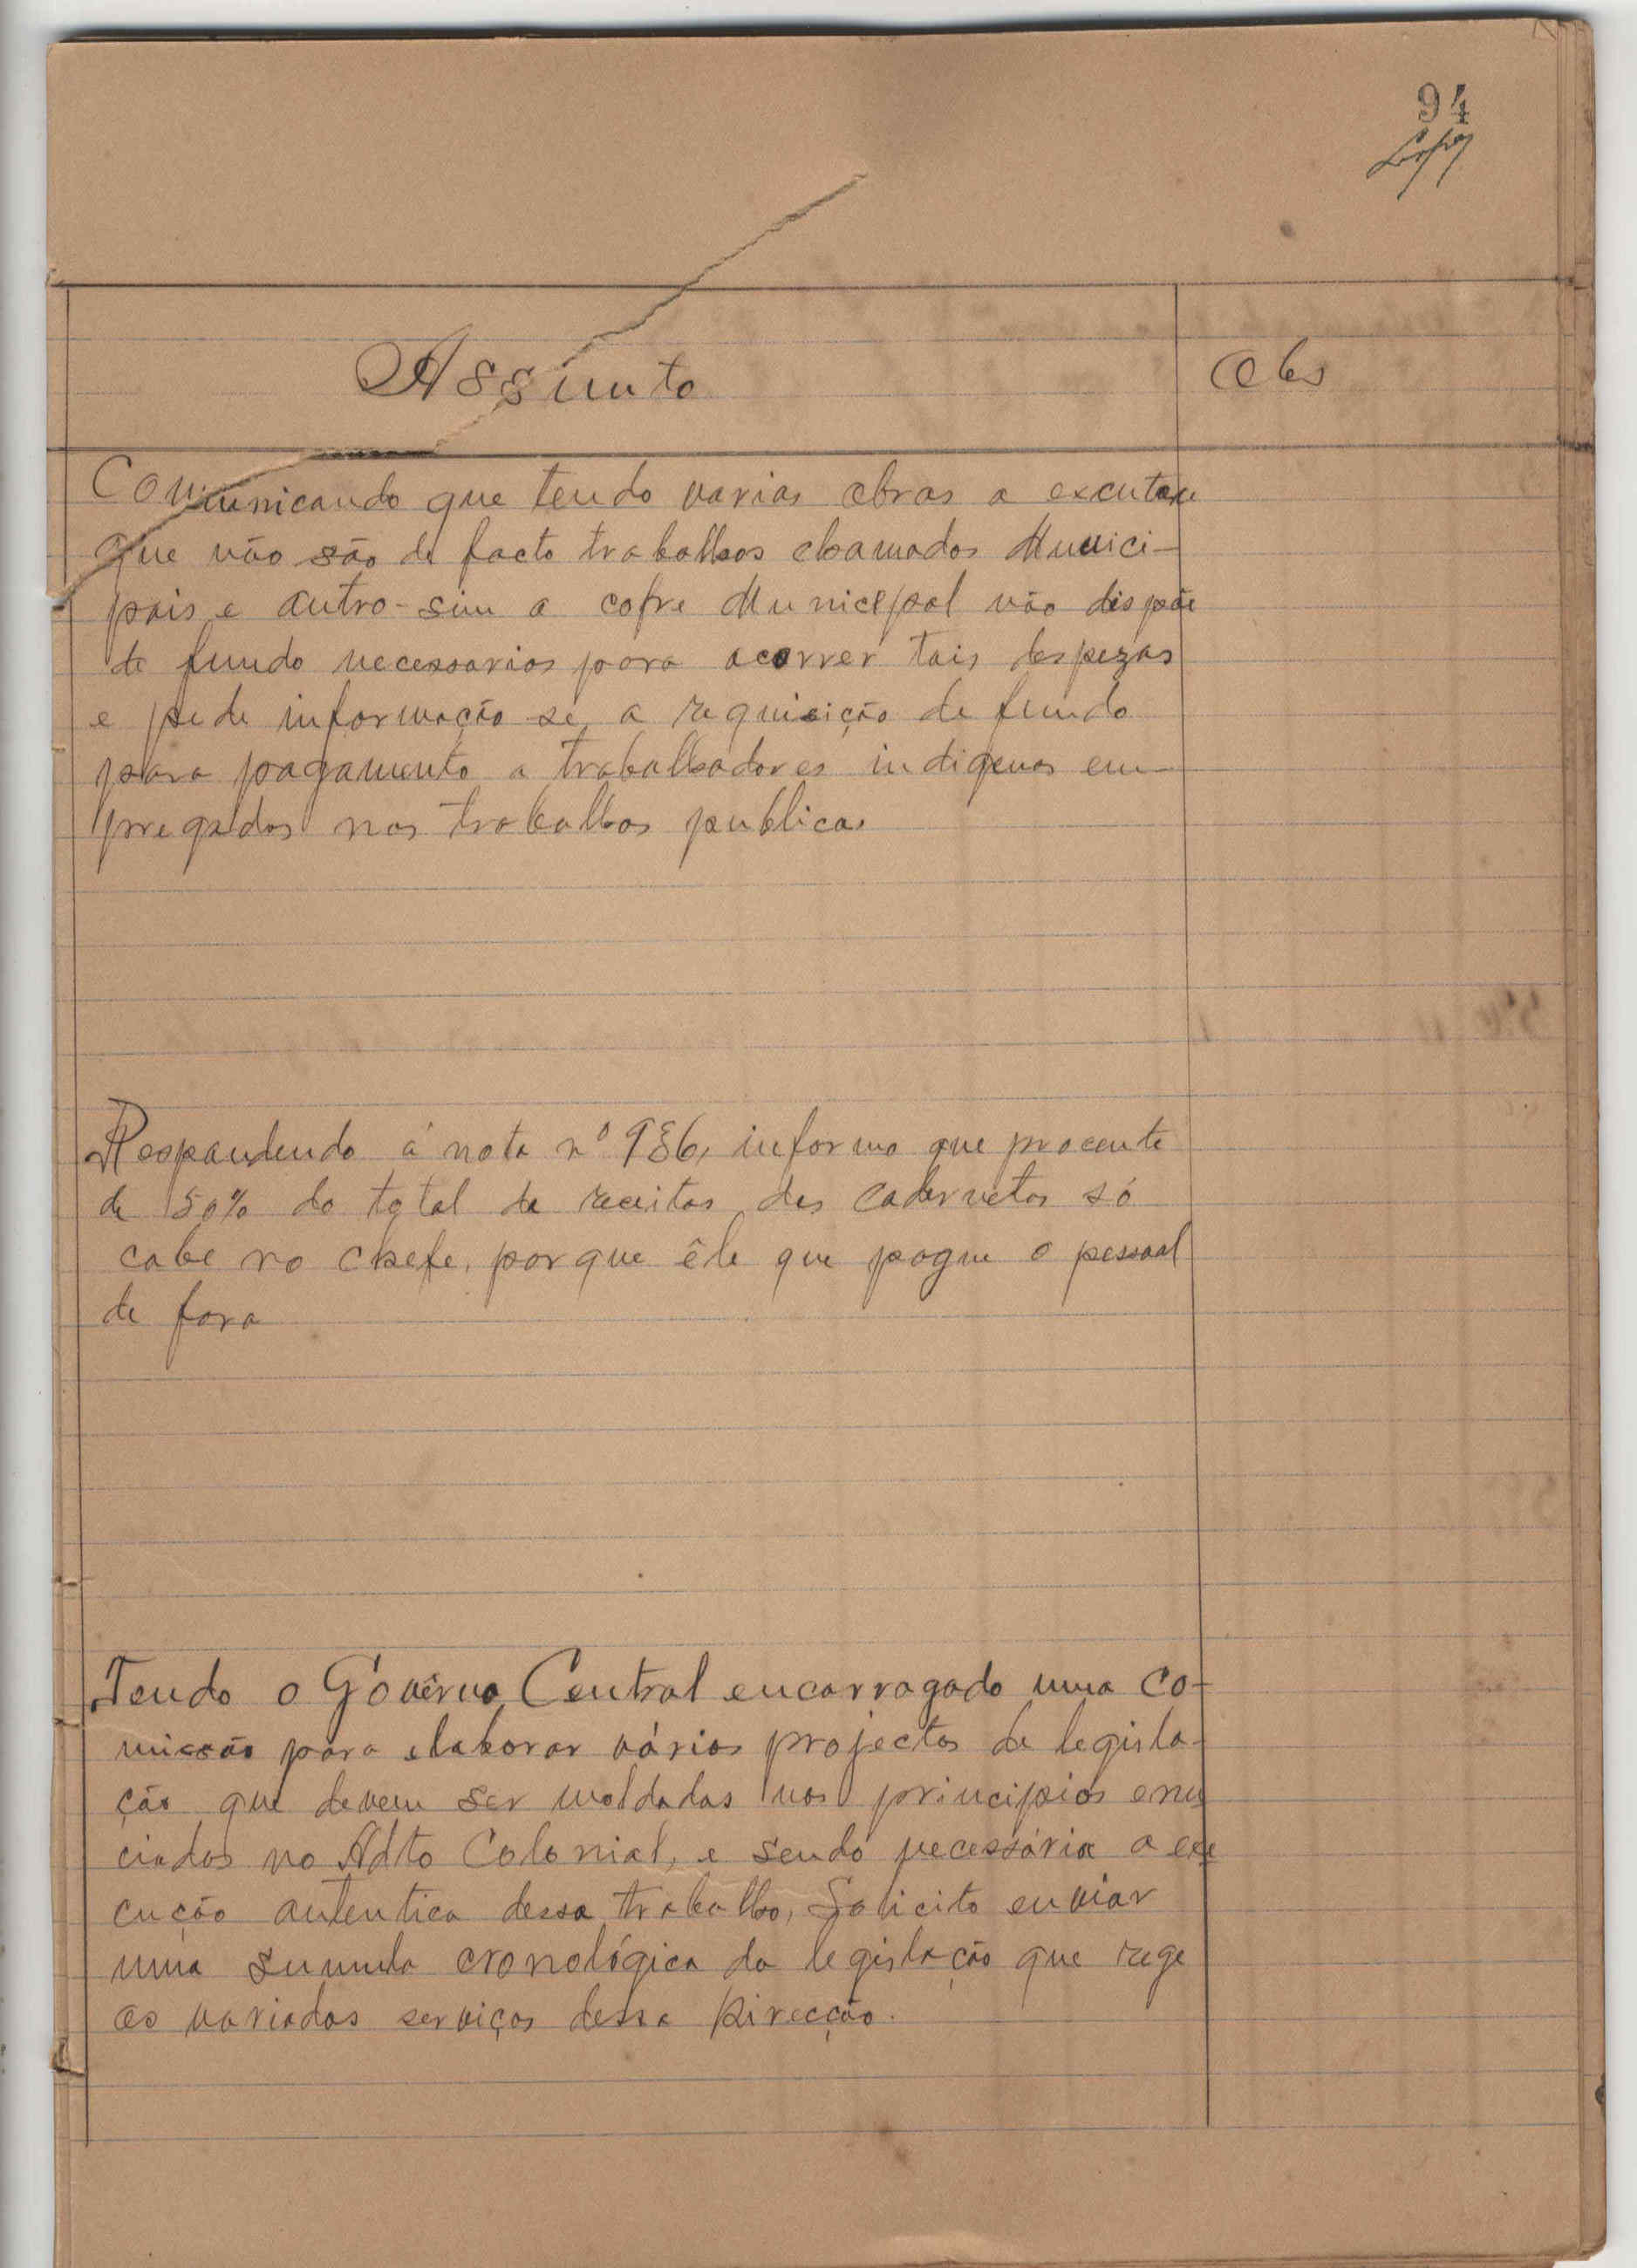 94
Assunto
Obs
Comunicando que tendo varias obras a excutar
que não são de facto trabalhos chamados Munici-
pais e outro-sim o cofre Municipal não dispõe
de fundo necessarios para acorrer tais despezas
e pede informação se, a requisição de fundo
para pagamento a trabalhadores indigenas em-
pregados nos trabalhos publicos
Respondendo á nota nº 986, informo que procente
de 50% do total da receitas das cadernetas só
cabe no chefe, porque êle que pague o pessoal
de fora
Tendo o Govêrno Central encarragado uma co-
missão para elaborar vários projectos de legisla-
ção que devem ser moldadas nos principios enu
ciados no Adto Colonial, e sendo necessária a exe
cução autentica dessa trabalho, Solicito enviar
uma sumula cronológica da legislação que rege
os variados serviços dessa Direcção.